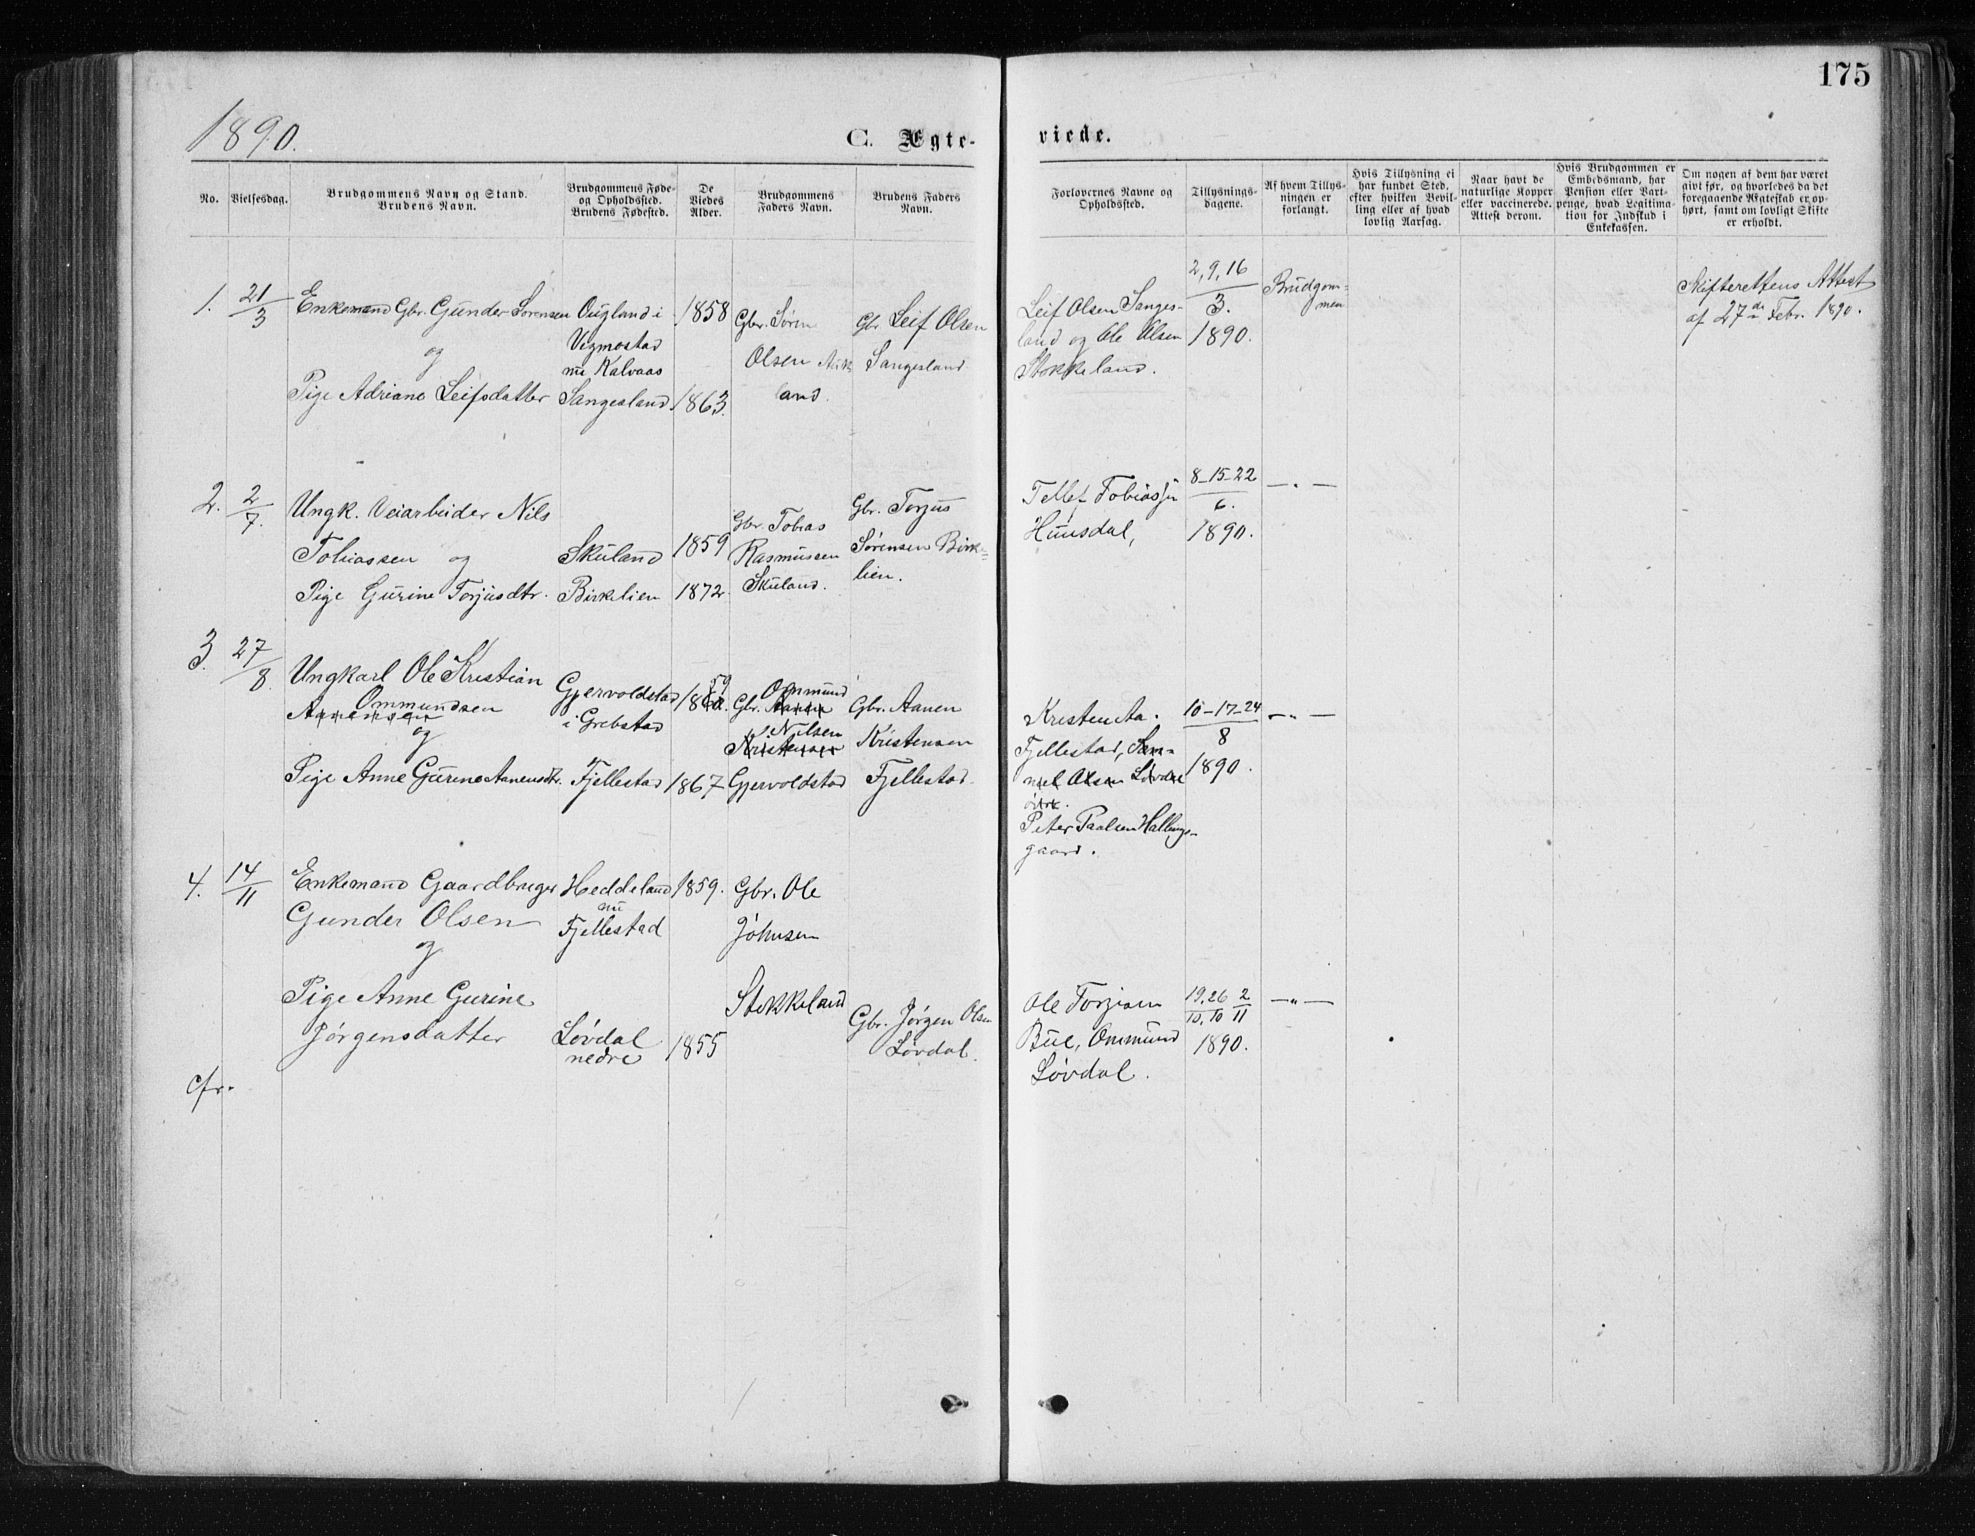 175
1890.
C. Ægte-
viede.
No.
Vielsesdag.
Brudgommens Navn og Stand.
Brudens Navn.
Brudgommens Føde-
og Opholdssted.
Brudens Fødested.
De
Viedes
Alder.
Brudgommens
Faders Navn.
Brudens Faders
Navn.
Forlovernes Navne og
Opholdssted.
Tillysnings-
dagene.
Af hvem Tillys-
ningen er
forlangt.
Hvis Tillysning ei
har fundet Sted,
efter hvilken Bevil-
ling eller af hvad
lovlig Aarsag.
Naar havt de
naturlige Kopper
eller vaccinerede.
Attest derom.
Hvis Brudgommen er
Embedsmand, har
Pension eller Vart-
penge, hvad Legitima-
tion for Indskud i
Enkekassen.
Om nogen af dem har været
givt før, og hvorledes da det
foregaaende Ægteskab er op-
hørt, samt om lovligt Skifte
er erholdt.
1.
21
3
Enkemand Gbr. Gunder Sørensen
og
Pige Adriane Leifsdatter
Ougland i
Vigmostad
nu Kalvaas
Sangesland
1858
1863.
Gbr. Søren
Olsen Auk
land.
Gbr. Leif Olsen
Sangesland
Leif Olsen Sanges-
land og Ole Olsen
Stokkeland.
2, 9, 16
3.
1890.
Brudgom-
men
Skifterettens Attest
af 27de Febr. 1890.
2.
2
7.
Ungk. Veiarbeider Nils
Tobiassen og
Pige Gurine Torjusdtr.
Skuland
Birkelien
1859
1872
Gbr. Tobias
Rasmussen
Skuland.
Gbr. Torjus
Sørensen Birk-
lien.
Tellef Tobiassen
Huusdal,
8-15-22
6.
1890.
—„—
3.
27
8.
Ungkarl Ole Kristian
Ommundsen
Aanensen
og
Pige Anne Gurine Aanensdtr.
Gjervoldstad
i Grebstad
Fjellestad
59
1867
Ommund
Gbr. Aanen
Nilsen
Kristensen
Gjervoldstad
Gbr. Aanen
Kristensen
Fjellestad
Kristen Aa.
Fjellestad, Sam-
uel Olsen Løvdal
Peter Paalsen Hallings-
gaard.
10-17-24
8
1890.
—„—
4.
14
11
Enkemand Gaardbruger
Gunder Olsen
og
Pige Anne Gurine
Jørgensdatter
Heddeland
nu
Fjellestad
Løvdal
nedre
1859.
1855
Gbr. Ole
Johnsen
Stokkeland
Gbr. Jørgen Olsen
Løvdal.
Ole Torjusen
Bue, Ommund
Løvdal.
19, 26 2
10, 10 11
1890.
—„—
cfr.